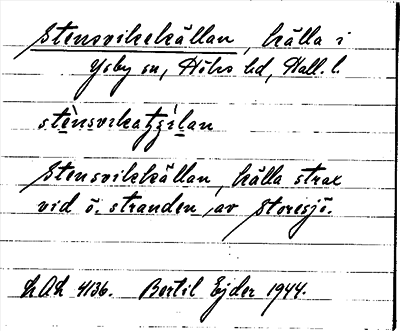 Stensvikskällan, källa i
Ysby sn, Höks hd, Hall. l.
Stensvikskällan, källa strax
vid ö. stranden av Storesjö.
LAL 4136. Bertil Ejder 1944.